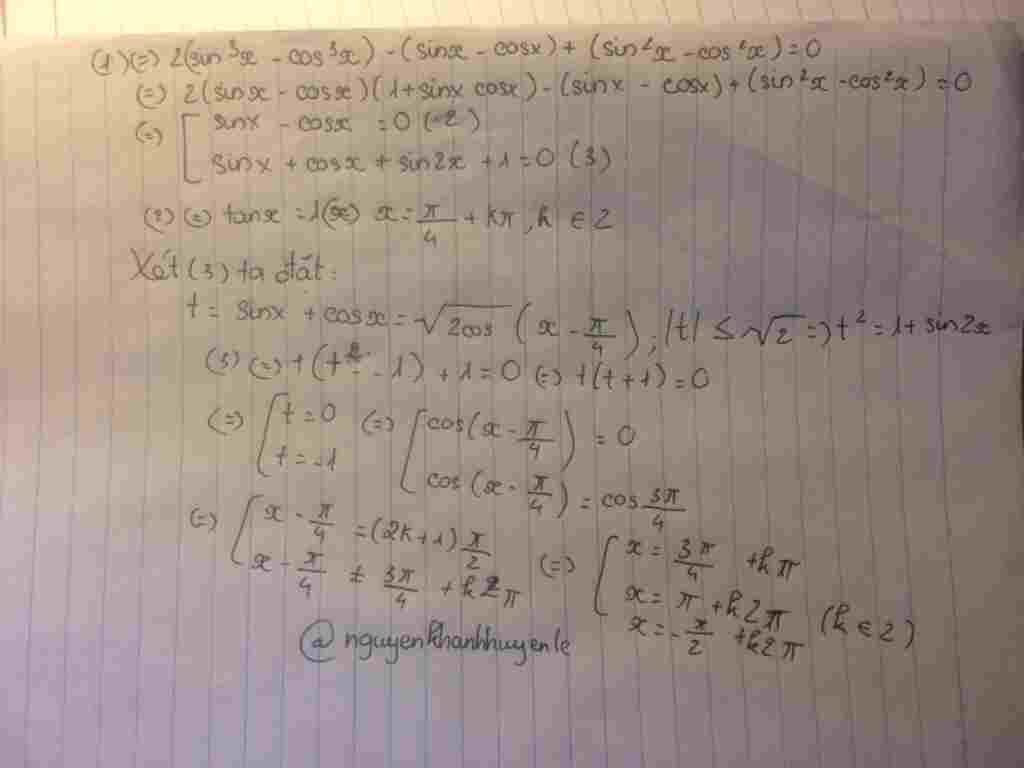 (1) (=) 2(sin³x - cos³x) - (sinx - cosx) + (sin²x - cos²x) = 0
(=) 2(sinx - cosx)(1 + sinx cosx) - (sinx - cosx) + (sin²x - cos²x) = 0
(=) [ sinx - cosx = 0 (2)
sinx + cosx + sin2x + 1 = 0 (3)
(2) (=) tanx = 1 (=) x = π/4 + kπ, k ∈ Z
Xét (3) ta đặt:
t = sinx + cosx = √2cos (x - π/4); |t| ≤ √2 => t² = 1 + sin2x
(3) (=) t + (t² - 1) + 1 = 0 (=) t(t + 1) = 0
(=) [ t = 0 (=) [ cos(x - π/4) = 0
t = -1 cos(x - π/4) = cos 3π/4
(=) [ x - π/4 = (2k + 1) π/2 (=) [ x = 3π/4 + kπ
x - π/4 = ± 3π/4 + k2π x = π + k2π (k ∈ Z)
x = -π/2 + k2π
@nguyenkhanhhuyenle